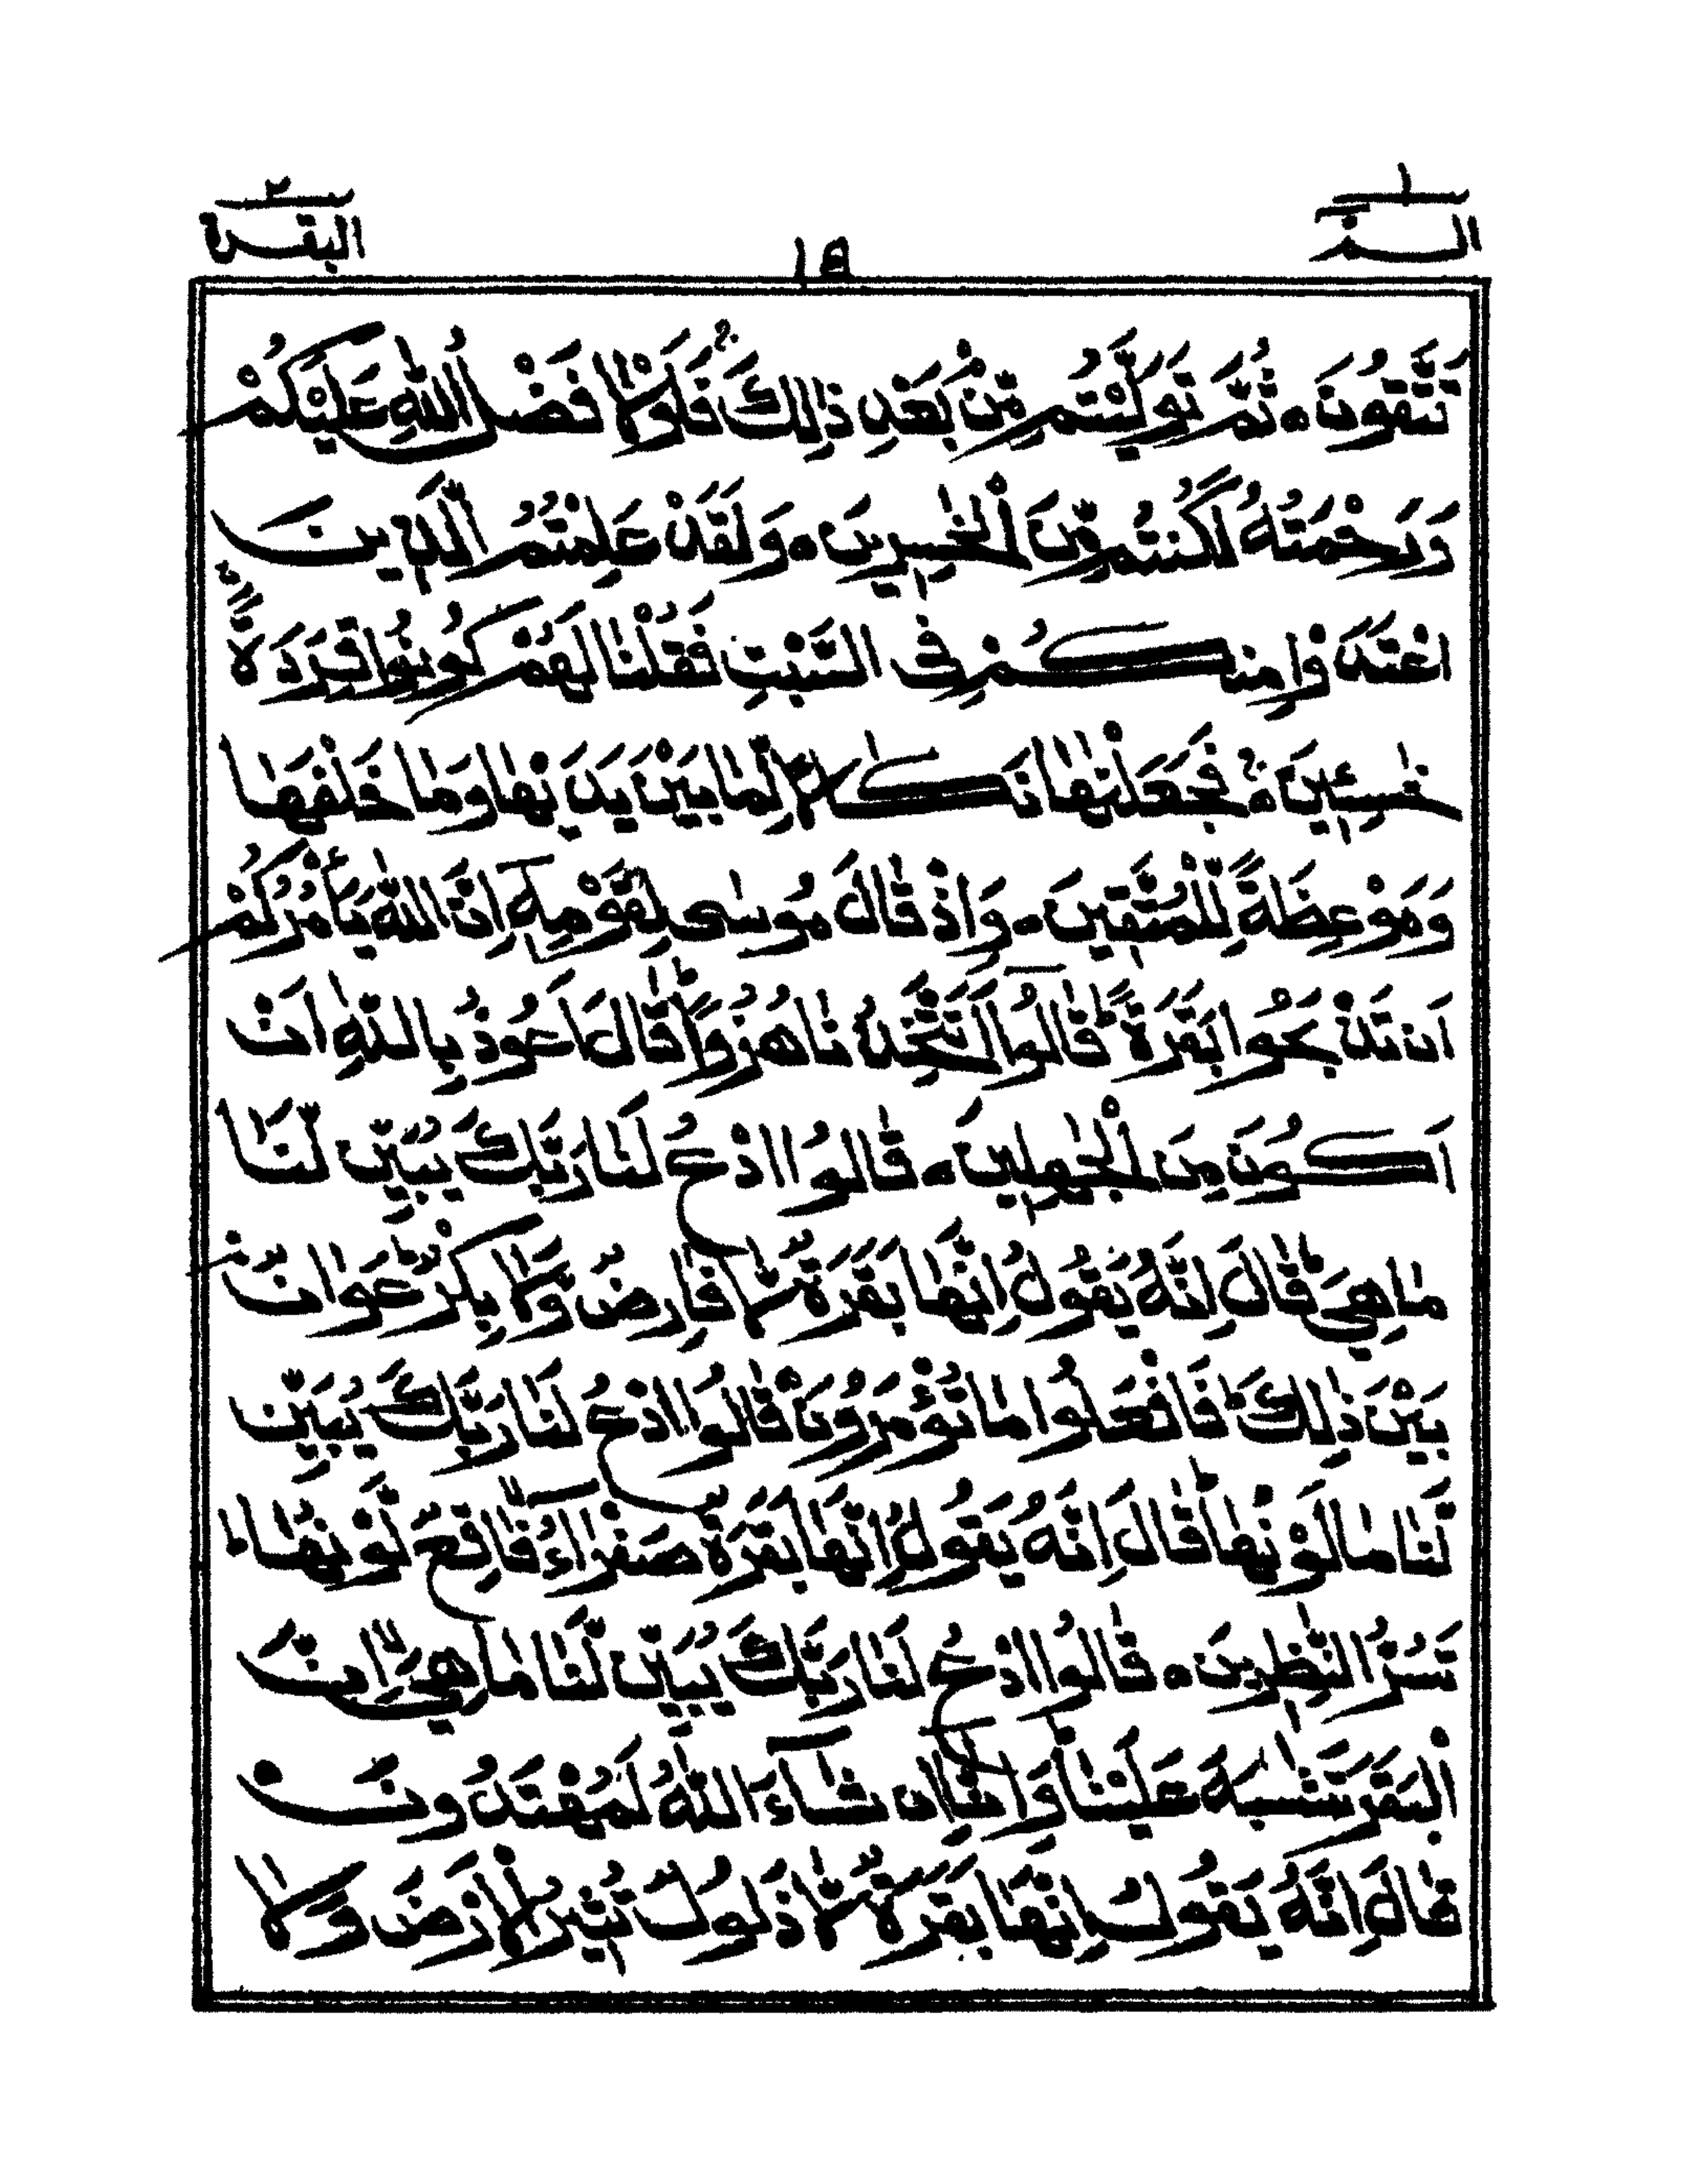 الٓمّٓ ١
١٥
البقرة ٢
تَتَّقُوْنَ ۝ ثُمَّ تَوَلَّيْتُمْ مِّنْۢ بَعْدِ ذٰلِكَ ۚ فَلَوْلَا فَضْلُ اللّٰهِ عَلَيْكُمْ
وَرَحْمَتُهٗ لَكُنْتُمْ مِّنَ الْخٰسِرِيْنَ ۝ وَلَقَدْ عَلِمْتُمُ الَّذِيْنَ
اعْتَدَوْا مِنْكُمْ فِي السَّبْتِ فَقُلْنَا لَهُمْ كُوْنُوْا قِرَدَةً
خٰسِـِٕيْنَ ۝ۚ فَجَعَلْنٰهَا نَكَالًا لِّمَا بَيْنَ يَدَيْهَا وَمَا خَلْفَهَا
وَمَوْعِظَةً لِّلْمُتَّقِيْنَ ۝ وَاِذْ قَالَ مُوْسٰى لِقَوْمِهٖٓ اِنَّ اللّٰهَ يَاْمُرُكُمْ
اَنْ تَذْبَحُوْا بَقَرَةً ؕ قَالُوْٓا اَتَتَّخِذُنَا هُزُوًا ؕ قَالَ اَعُوْذُ بِاللّٰهِ اَنْ
اَكُوْنَ مِنَ الْجٰهِلِيْنَ ۝ قَالُوا ادْعُ لَنَا رَبَّكَ يُبَيِّنْ لَّنَا
مَا هِيَ ؕ قَالَ اِنَّهٗ يَقُوْلُ اِنَّهَا بَقَرَةٌ لَّا فَارِضٌ وَّلَا بِكْرٌ ؕ عَوَانٌۢ
بَيْنَ ذٰلِكَ ؕ فَافْعَلُوْا مَا تُؤْمَرُوْنَ ۝ قَالُوا ادْعُ لَنَا رَبَّكَ يُبَيِّنْ
لَّنَا مَا لَوْنُهَا ؕ قَالَ اِنَّهٗ يَقُوْلُ اِنَّهَا بَقَرَةٌ صَفْرَآءُ ۙ فَاقِعٌ لَّوْنُهَا
تَسُرُّ النّٰظِرِيْنَ ۝ قَالُوا ادْعُ لَنَا رَبَّكَ يُبَيِّنْ لَّنَا مَا هِيَ ۙ اِنَّ
الْبَقَرَ تَشٰبَهَ عَلَيْنَا ؕ وَاِنَّآ اِنْ شَآءَ اللّٰهُ لَمُهْتَدُوْنَ ۝
قَالَ اِنَّهٗ يَقُوْلُ اِنَّهَا بَقَرَةٌ لَّا ذَلُوْلٌ تُثِيْرُ الْاَرْضَ وَلَا